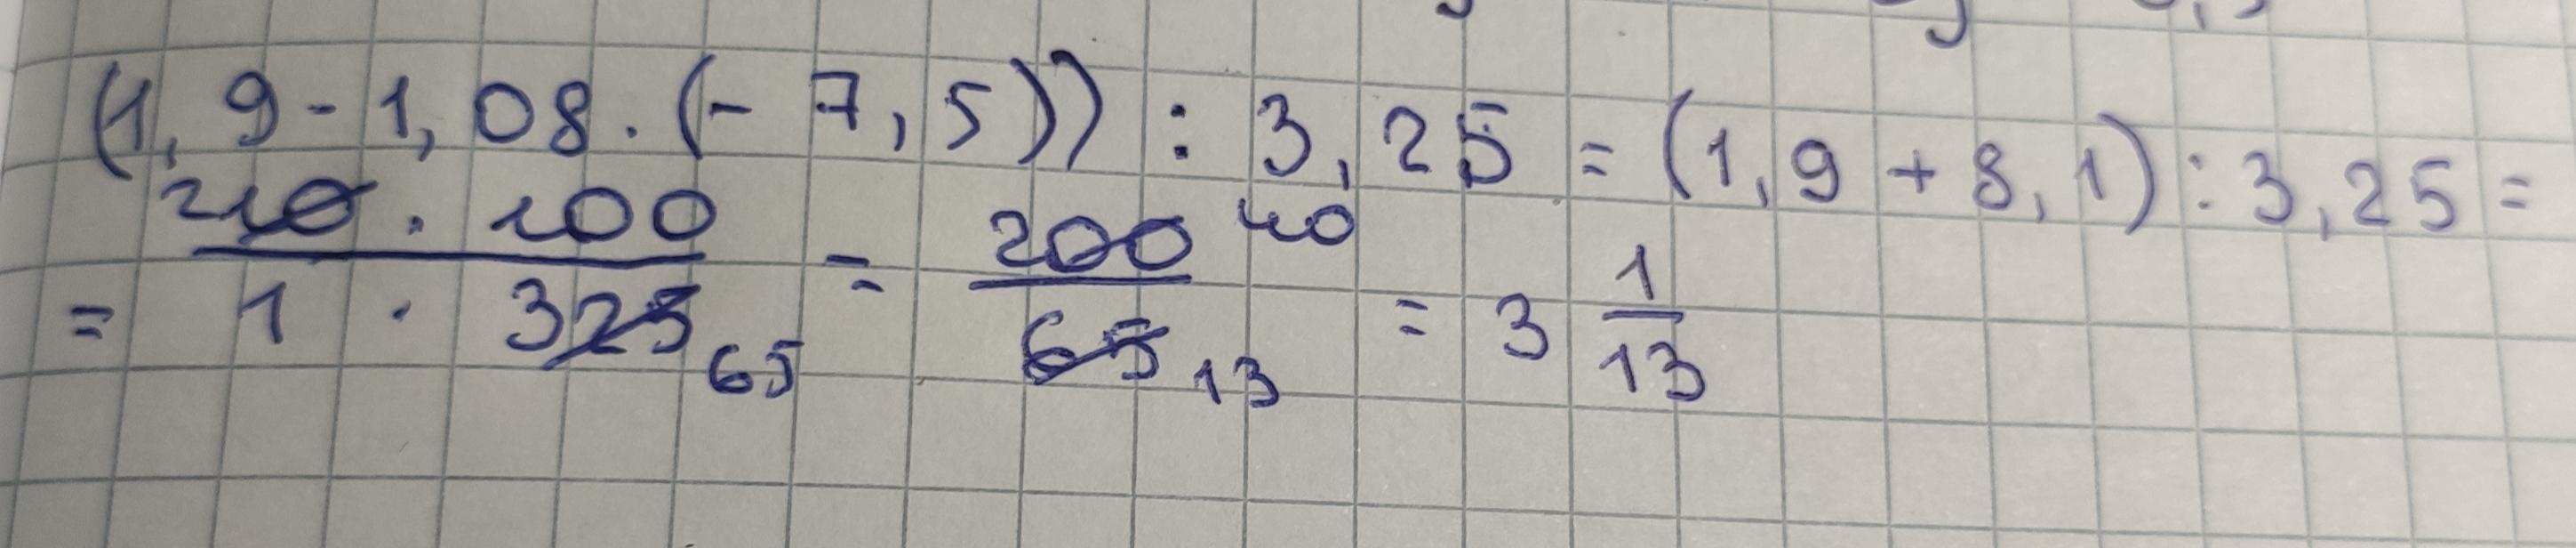 (1,9-1,08·(-7,5)):3,25=(1,9+8,1):3,25=
= 2 10·100 / 1·325 65 = 200 40 / 65 13 = 3 1/13